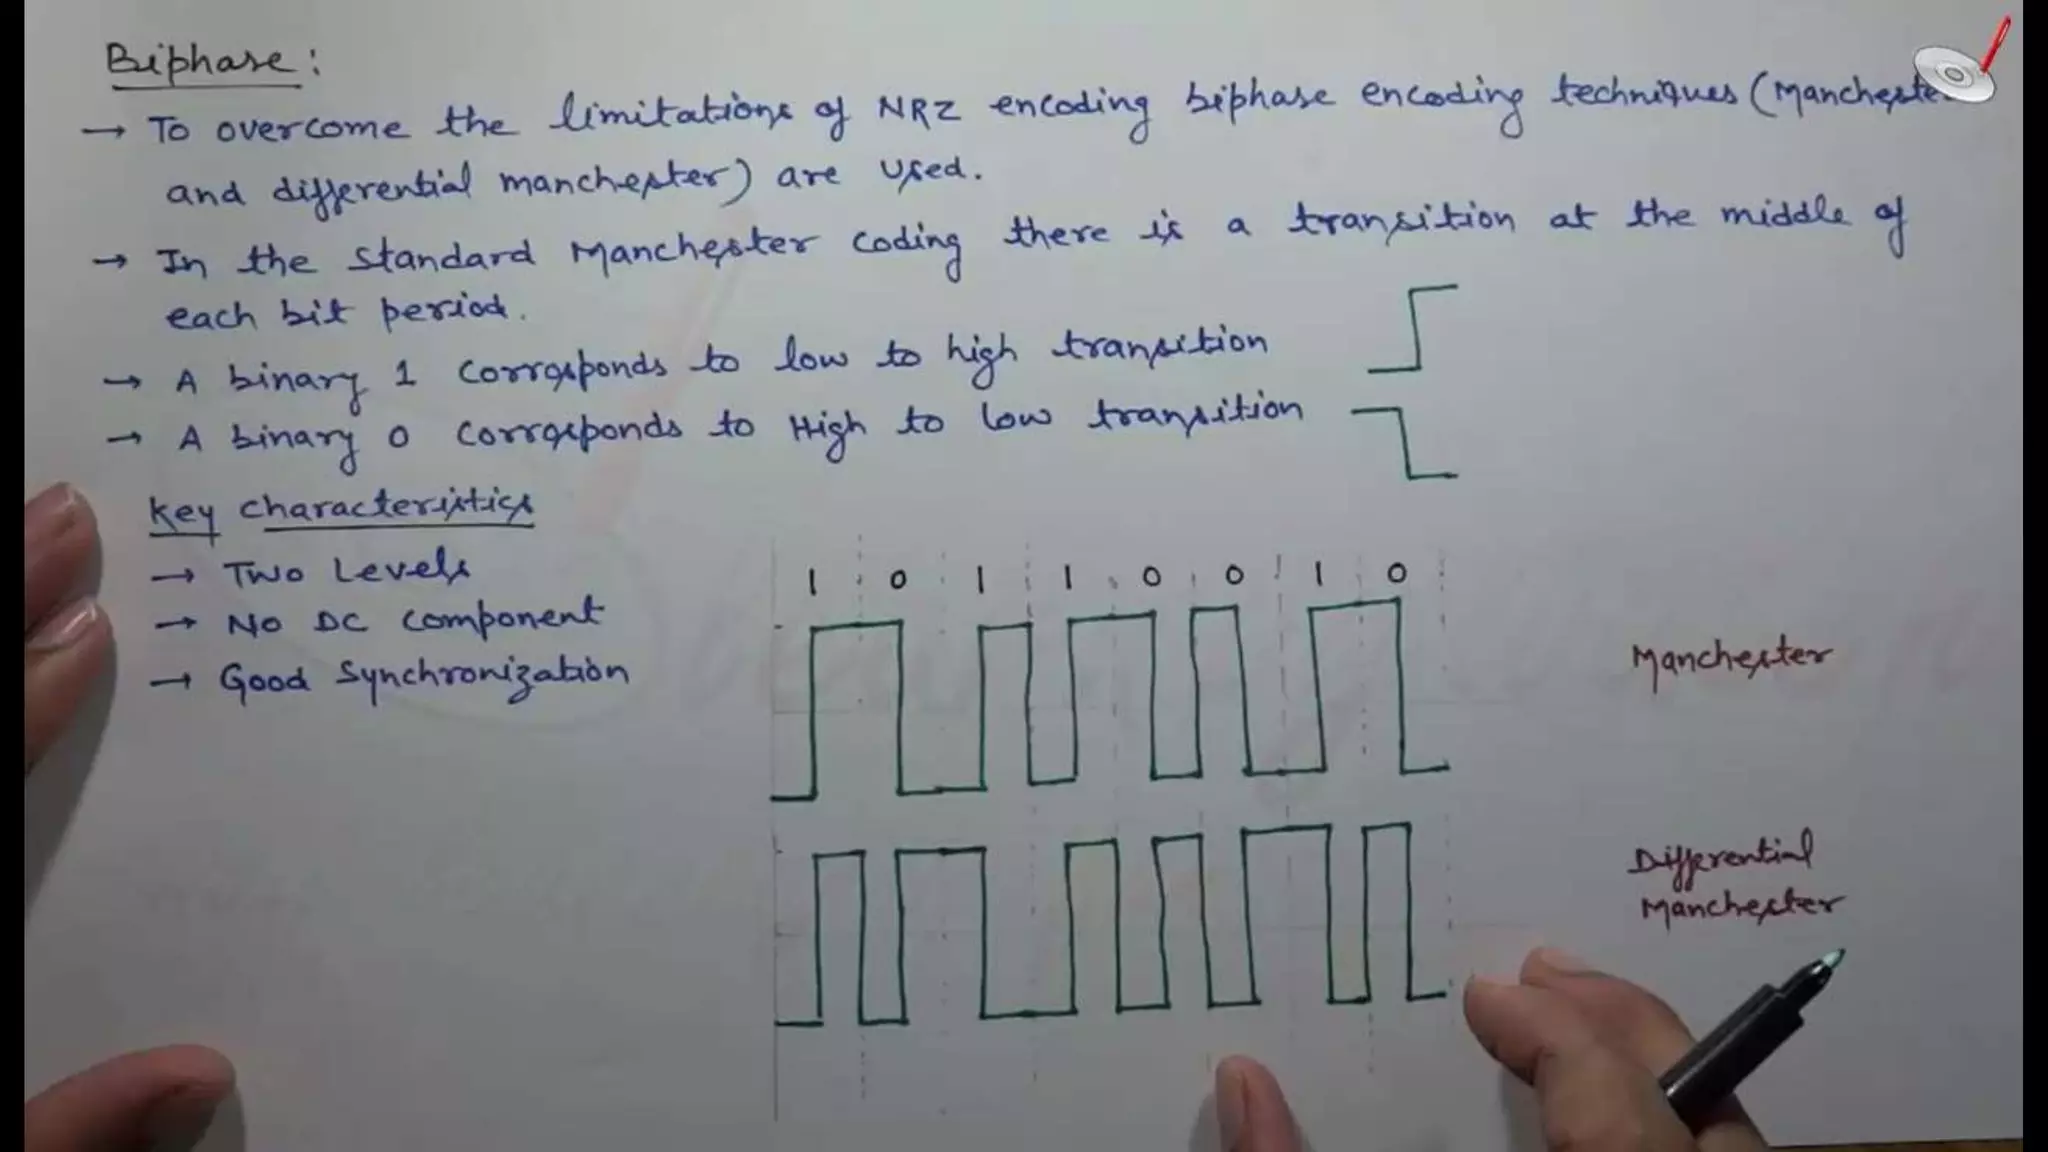 Biphase:
→ To overcome the limitations of NRZ encoding biphase encoding techniques (Manchester
and differential manchester) are used.
→ In the standard Manchester coding there is a transition at the middle of
each bit period.
→ A binary 1 corresponds to low to high transition
→ A binary 0 corresponds to High to low transition
Key characteristics
→ Two Levels
→ No DC component
→ Good Synchronization
1 0 1 1 0 0 1 0
Manchester
Differential
Manchester